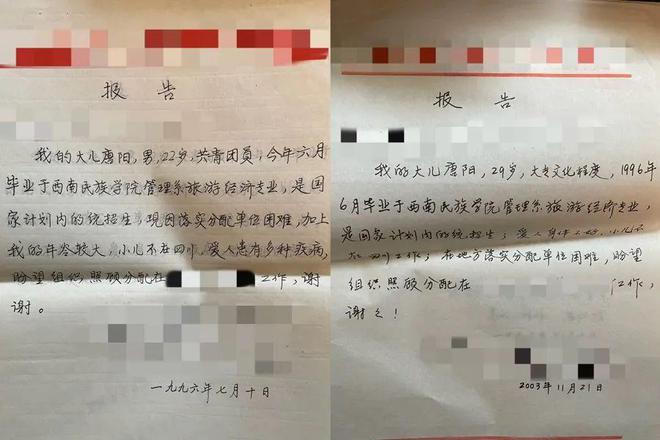 报 告
我的大儿唐阳,男,22岁,共青团员,今年六月
毕业于西南民族学院管理系旅游经济专业,是国
家计划内的统招生,现因落实分配单位困难,加上
我的年令较大,小儿不在四川,爱人患有多种疾病,
盼望组织照顾分配在 工作,谢
谢。
一九九六年七月十日
报 告
我的大儿唐阳,29岁,大专文化程度,1996年
6月毕业于西南民族学院管理系旅游经济专业,
是国家计划内的统招生;爱人身体不好,小儿不
在四川工作;在地方落实分配单位困难,盼望
组织照顾分配在 工作,
谢谢!
2003年11月21日